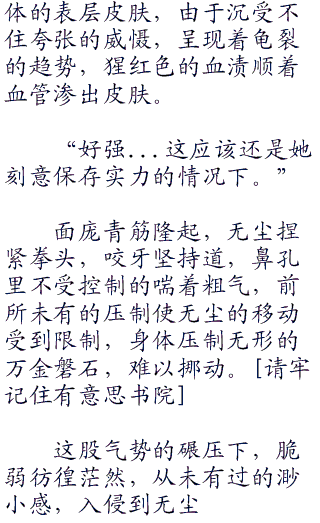 体的表层皮肤，由于沉受不
住夸张的威慑，呈现着龟裂
的趋势，猩红色的血渍顺着
血管渗出皮肤。
“好强...这应该还是她
刻意保存实力的情况下。”
面庞青筋隆起，无尘捏
紧拳头，咬牙坚持道，鼻孔
里不受控制的喘着粗气，前
所未有的压制使无尘的移动
受到限制，身体压制无形的
万金磐石，难以挪动。[请牢
记住有意思书院]
这股气势的碾压下，脆
弱彷徨茫然，从未有过的渺
小感，入侵到无尘